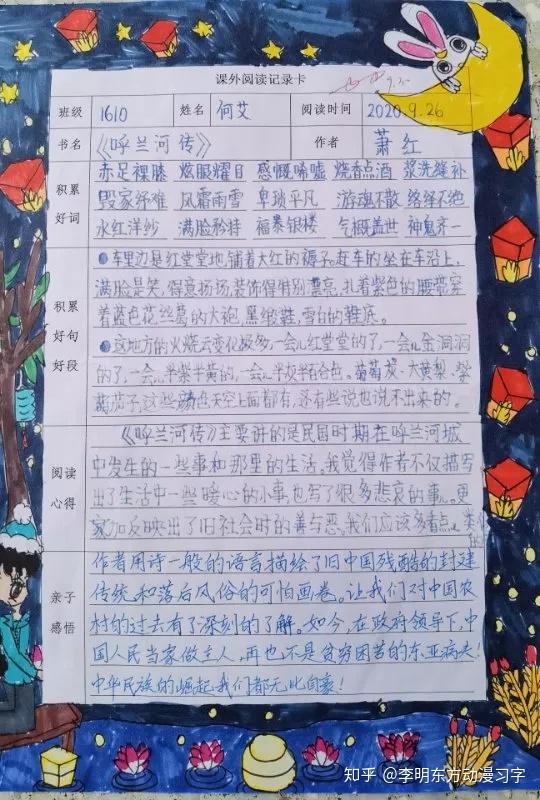 课外阅读记录卡
班级 1610 姓名 何艾 阅读时间 2020.9.26
书名 《呼兰河传》 作者 萧红
积累好词
赤足裸膝 炫眼耀目 感慨唏嘘 烧香点酒 浆洗缝补
毁家纾难 风霜雨雪 卑琐平凡 游魂不散 络绎不绝
水红洋纱 满脸矜持 福泰银楼 气概盖世 神鬼齐一
积累好句好段
●车里边是红堂堂地铺着大红的褥子。赶车的坐在车沿上,
满脸是笑,得意扬扬,装饰得特别漂亮,扎着紫色的腰带,穿
着蓝色花丝葛的大袍,黑缎鞋,雪白的鞋底。
●这地方的火烧云变化极多,一会儿红堂堂的了,一会儿金洞洞
的了,一会儿半紫半黄的,一会儿半灰半百合色。葡萄灰、大黄梨、紫
茄子,这些颜色天空上面都有,还有些说也说不出来的。
阅读心得
《呼兰河传》主要讲的是民国时期在呼兰河城
中发生的一些事和那里的生活。我觉得作者不仅描写
出了生活中一些暖心的小事,也写了很多悲哀的事儿。更
加反映出了旧社会时的善与恶。我们应该多看点儿类似
的
亲子感悟
作者用诗一般的语言描绘了旧中国残酷的封建
传统和落后风俗的可怕画卷。让我们对中国农
村的过去有了深刻的了解。如今,在政府领导下,中
国人民当家做主人,再也不是贫穷困苦的东亚病夫!
中华民族的崛起,我们都无比自豪!
知乎 @李明东方动漫习字